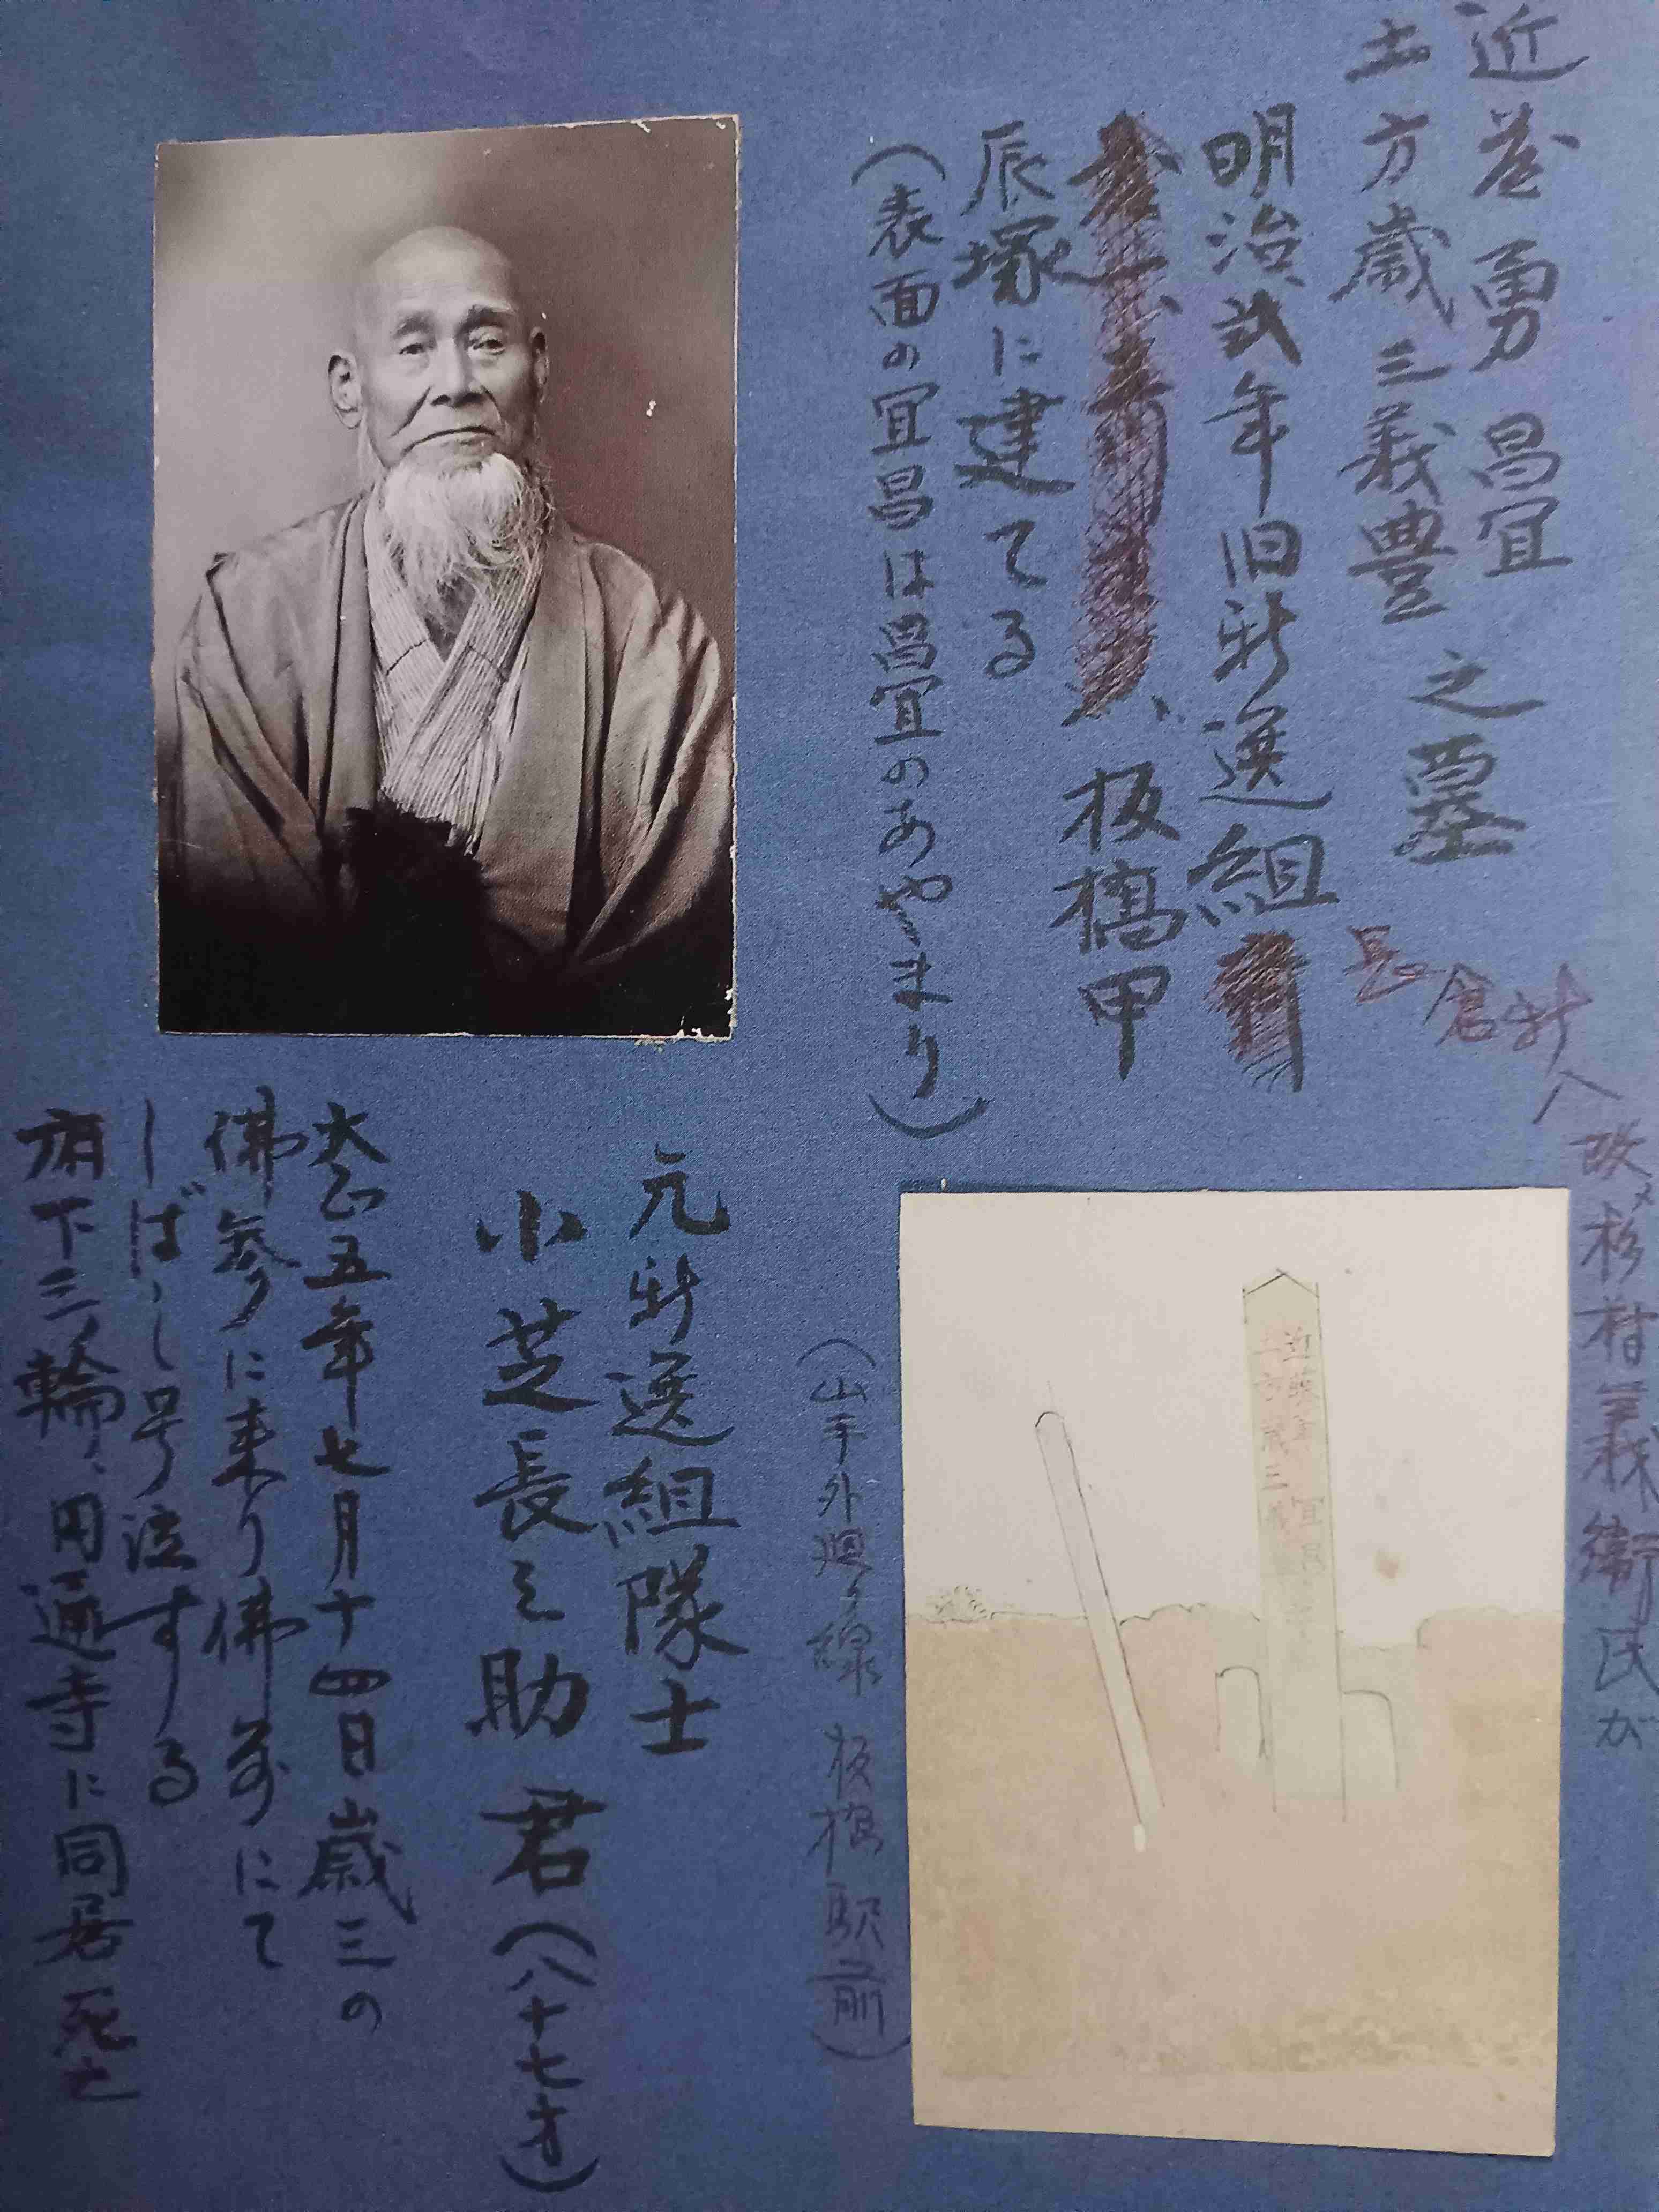 近藤勇昌宜
土方歳三義豊之墓
明治弐年旧新選組
長倉新八改メ杉村義衛氏が
板橋甲
辰塚に建てる
(表面の宜昌は昌宜のあやまり)
(山手外廻り線 板橋駅前)
元新選組隊士
小芝長之助君(八十七才)
大正五年七月十四日歳三の
佛参りに来り佛前にて
しばし号泣する
府下三ノ輪、円通寺に同居死亡
近藤勇宜昌
土方歳三義